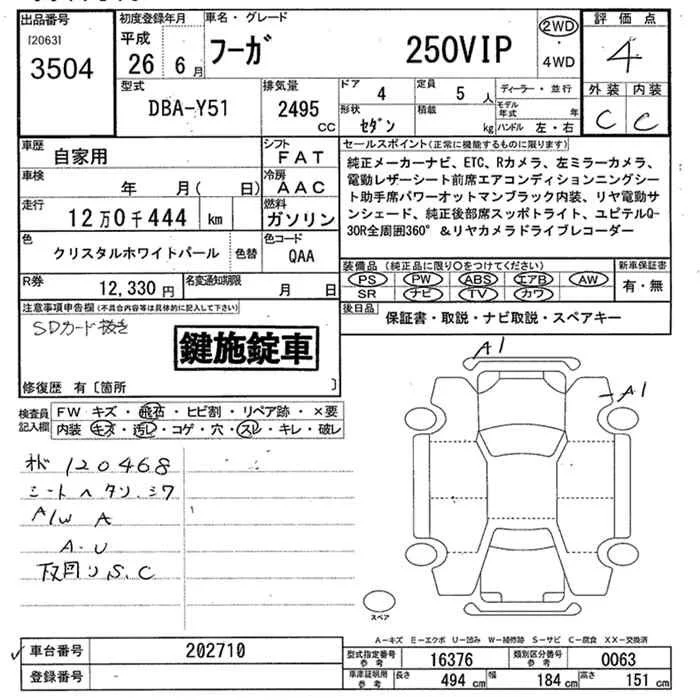 出品番号
[2063]
3504
初度登録年月
平成
26年 6月
車名・グレード
フーガ 250VIP
2WD
・
4WD
評価点
4
外装 内装
C C
型式
DBA-Y51
排気量
2495
CC
ドア 4
定員 5 人
ディーラー・並行
形状 セダン
積載 kg
モデル年式 年
ハンドル 左・右
車歴 自家用
シフト FAT
車検 年 月( 日)
冷房 AAC
走行 12万0千444 km
燃料 ガソリン
色 クリスタルホワイトパール 色替
色コード QAA
R券 12,330円
名変通知期限 月 日
セールスポイント(正常に機能するものに限ります)
純正メーカーナビ、ETC、Rカメラ、左ミラーカメラ、
電動レザーシート前席エアコンディションニングシー
ト助手席パワーオットマンブラック内装、リヤ電動サ
ンシェード、純正後部席スッポトライト、ユピテルQ-
30R全周囲360°&リヤカメラドライブレコーダー
装備品(純正品に限り〇をつけてください)
PS PW ABS エアB AW
SR ナビ TV カワ
新車保証書
有・無
後日品 保証書・取説・ナビ取説・スペアキー
注意事項申告欄(不具合内容等は具体的に記入して下さい)
SDカード抜き
鍵施錠車
修復歴 有〔箇所 〕
検査員記入欄
FW キズ・飛石・ヒビ割・リペア跡・×要
内装 キズ・汚レ・コゲ・穴・スレ・キレ・破レ
120468
シートヘタリ.シワ
A/W A
A.U
S.C
A1
A1
スペア
A-キズ E-エクボ U-凹み W-補修跡 S-サビ C-腐食 XX-交換済
車台番号 202710
登録番号
型式指定番号 参考 16376
類別区分番号 参考 0063
車庫証明用 参考 長さ 494 cm 幅 184 cm 高さ 151 cm